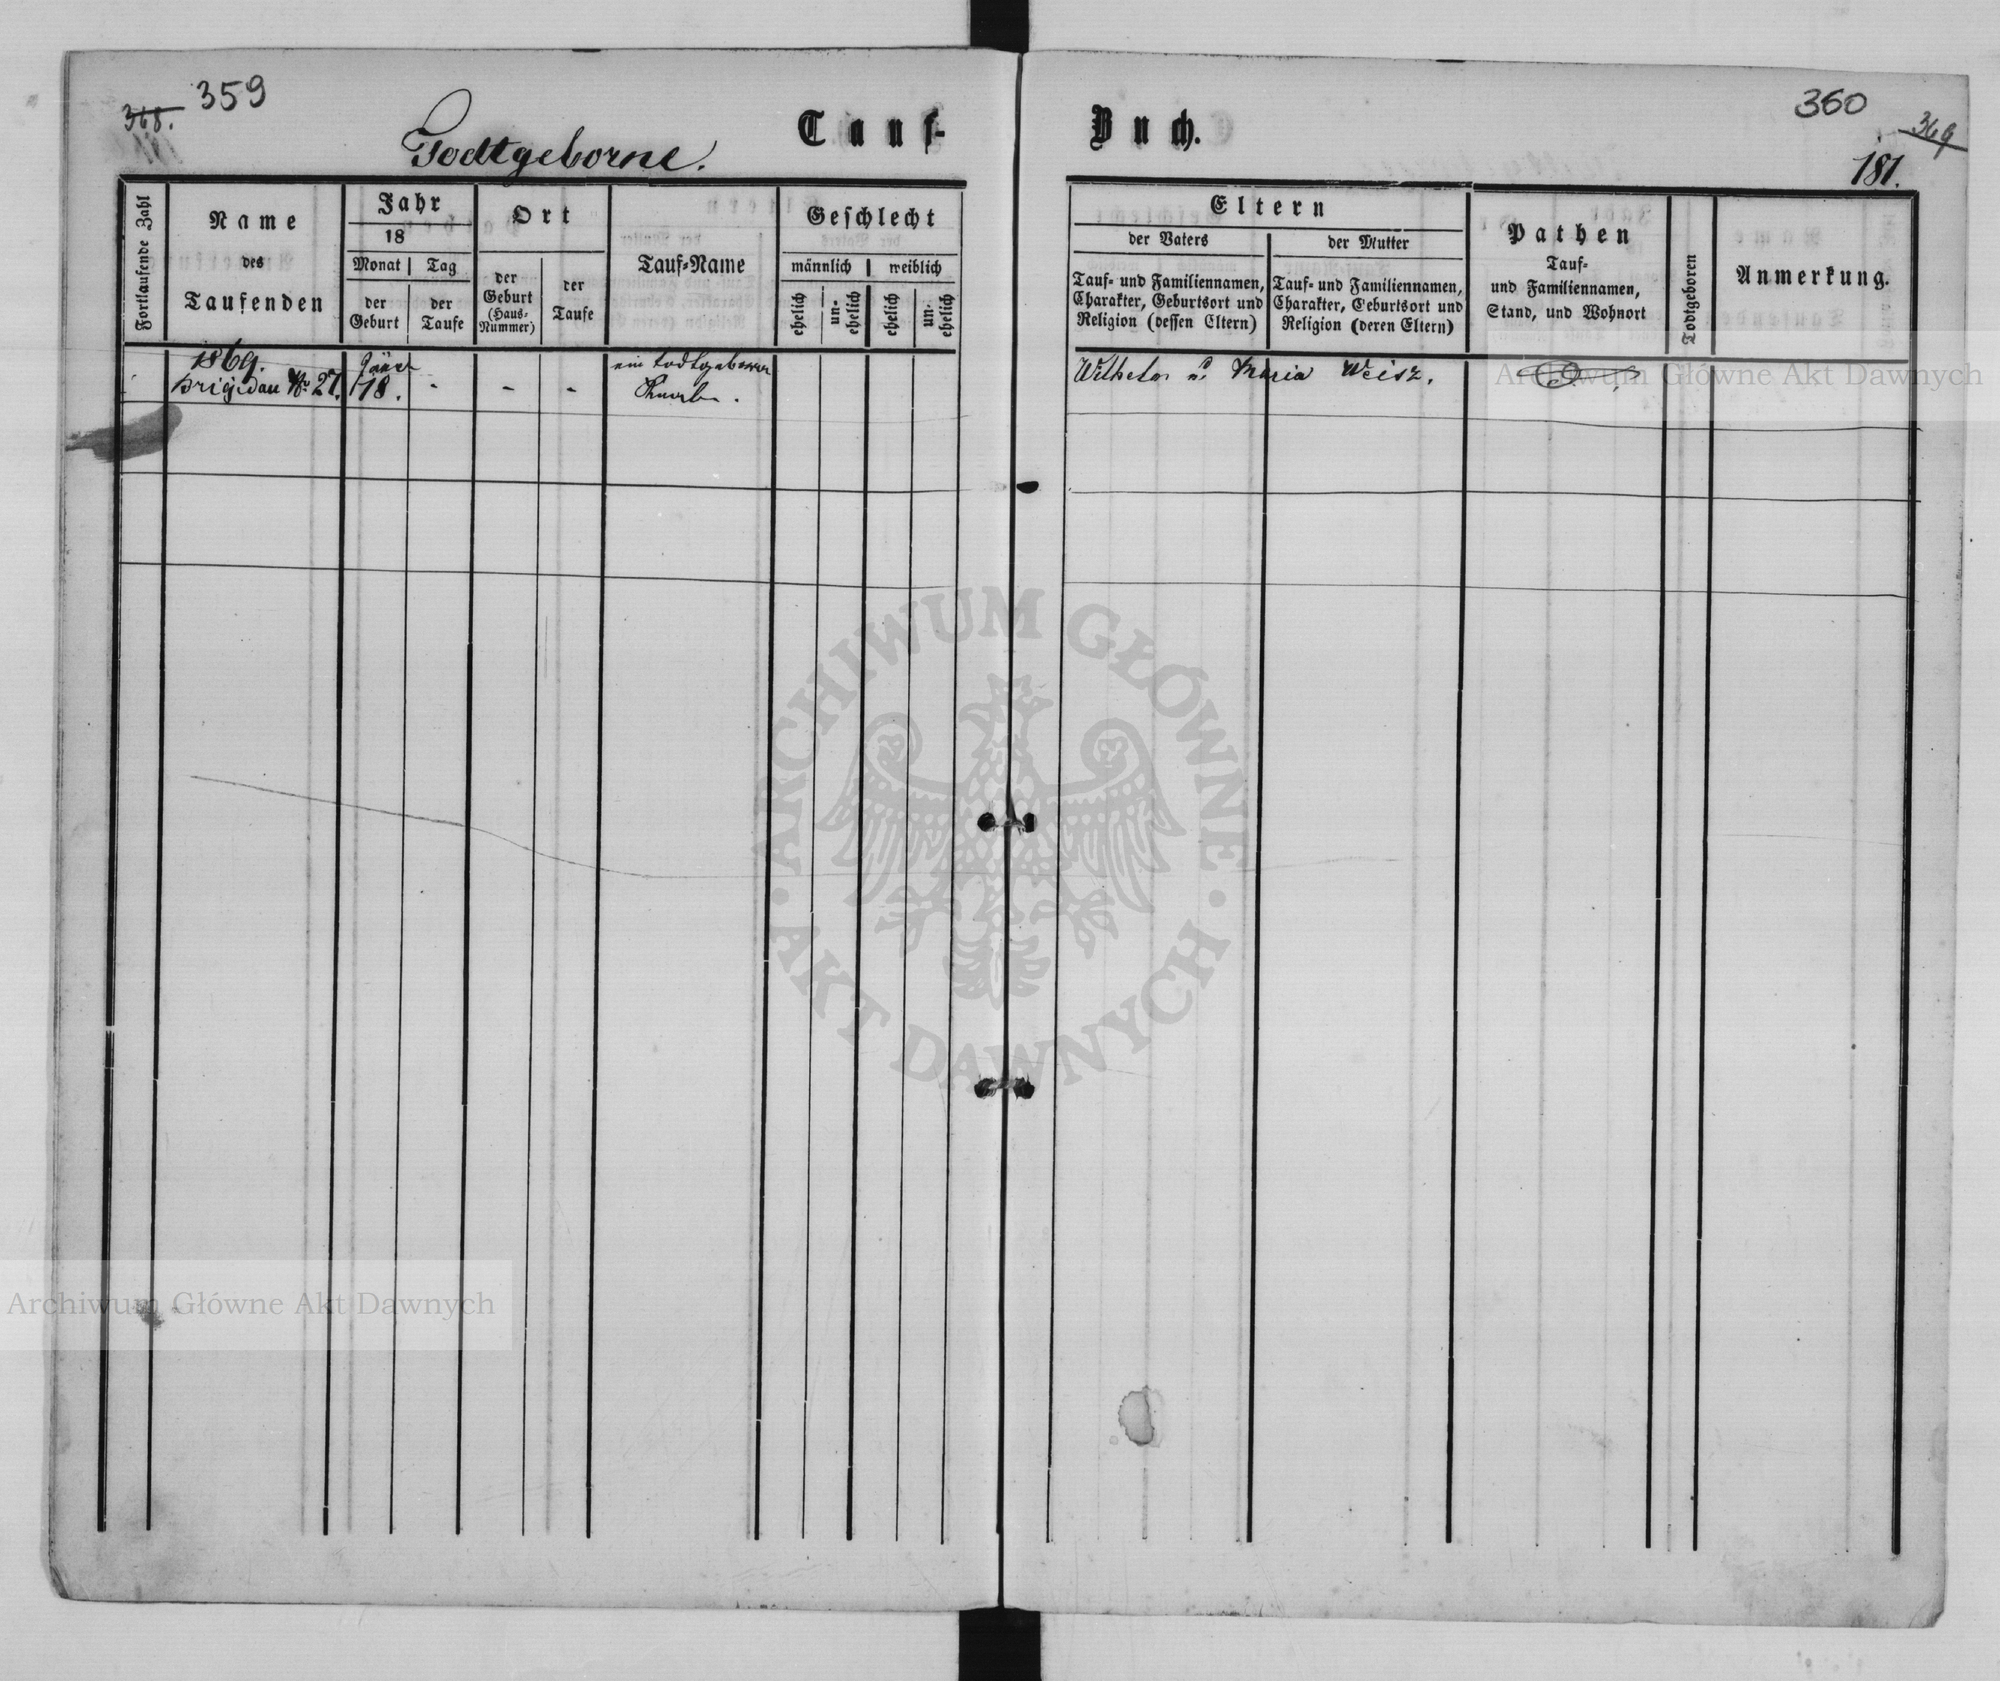 368.
359
Todtgeborne.
Tauf-
Buch.
360
369
181.
Fortlaufende Zahl
Name
des
Taufenden
Jahr
18
Monat
Tag
der
Geburt
der
Taufe
Ort
der
Geburt
(Haus-
Nummer)
der
Taufe
Tauf-Name
Geschlecht
männlich
weiblich
ehelich
un-
ehelich
ehelich
un-
ehelich
Eltern
der Vaters
der Mutter
Tauf- und Familiennamen,
Charakter, Geburtsort und
Religion (dessen Eltern)
Tauf- und Familiennamen,
Charakter, Geburtsort und
Religion (deren Eltern)
Pathen
Tauf-
und Familiennamen,
Stand, und Wohnort
Todtgeboren
Anmerkung.
1869.
Brigidau Nr 27.
Jäner
18.
-
-
-
ein todtgeborner
Knabe.
Wilhelm u. Maria Weisz.
Archiwum Główne Akt Dawnych
ARCHIWUM GŁÓWNE
AKT DAWNYCH
Archiwum Główne Akt Dawnych